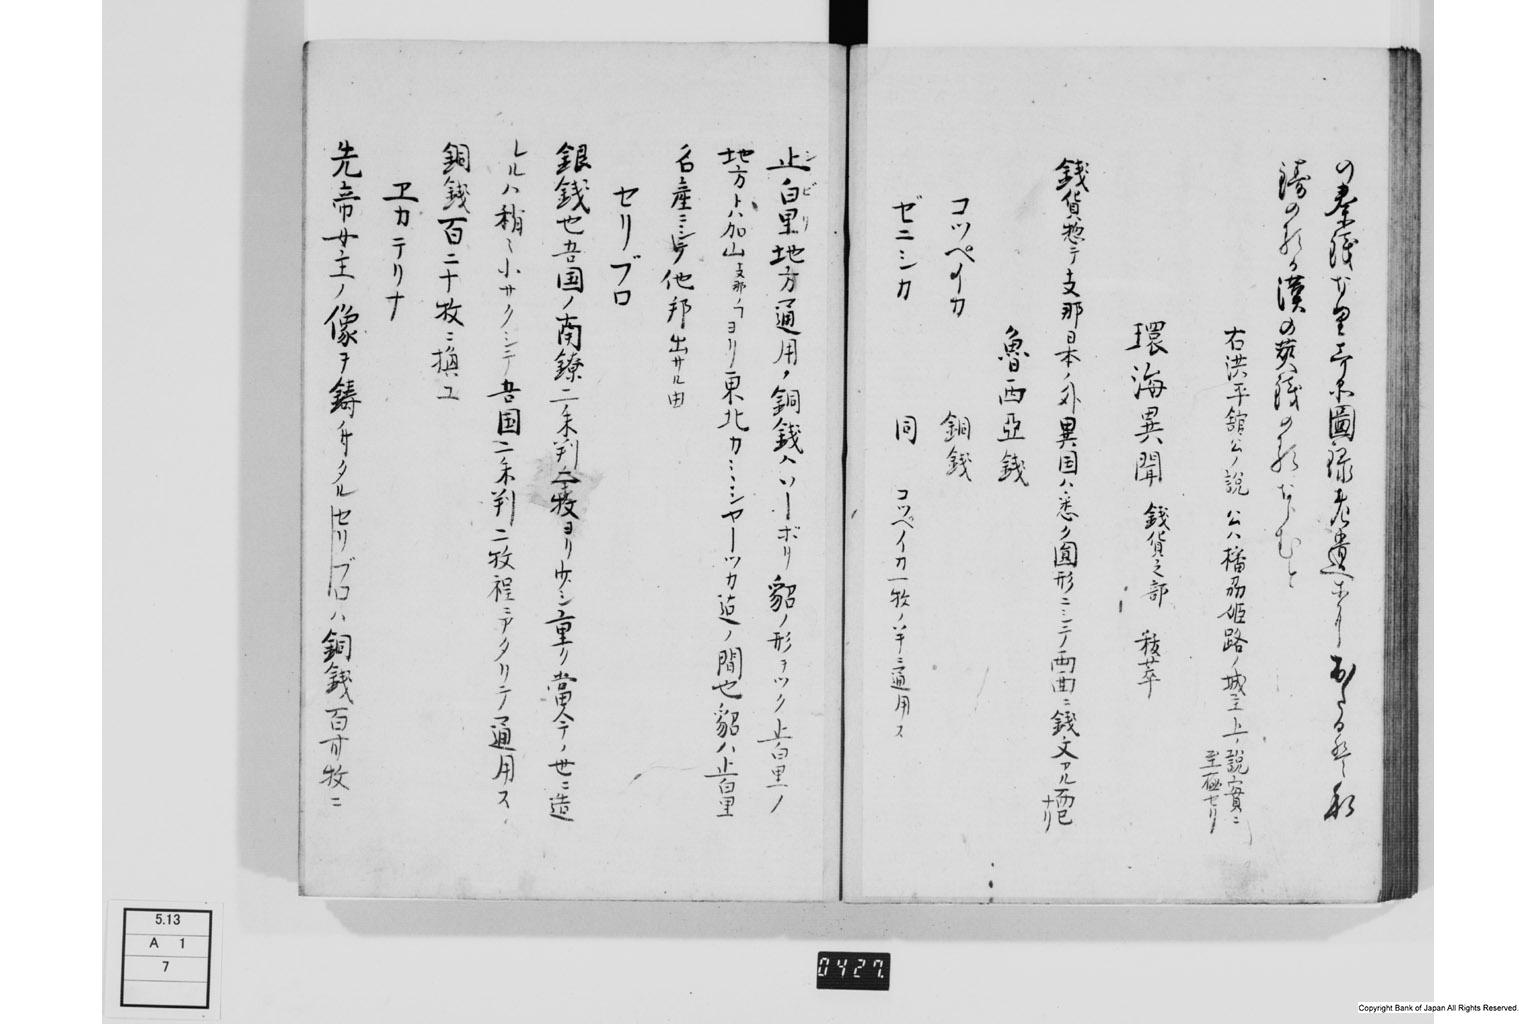 右洪平舘公ノ説 公ハ播劦姫路ノ城主 上ノ説實ニ
至極セリ
環海異聞 銭貨之部 抜萃
銭貨惣テ支那日本ノ外異国ハ悉ク圓形ニシテ両面ニ銭文アル而已
ナリ
魯西亞銭
コツペイカ 銅銭
ゼニシカ 同 コツペイカ一牧ノ半ニ通用ス
止白里地方通用ノ銅銭ハソーボリ貂ノ形ヲツク止白里ノ
シビリ
地方トハ加山支那ノヨリ東北カミシヤーツカ迠ノ間也貂ハ止白里
名産ニシテ他邦出サル由
セリブロ
銀銭也吾国ノ南鐐二朱判一牧ヨリ少シ重リ當今ノ世ニ造
レルハ稍々小サクシテ吾国二朱判二牧程ニアタリテ通用ス
銅銭百二十牧ニ換ユ
ヱカテリナ
先帝女主ノ像ヲ鋳付タルセリブロハ銅銭百廿牧ニ
5.13
A 1
7
0427
Copyright Bank of Japan All Rights Reserved.